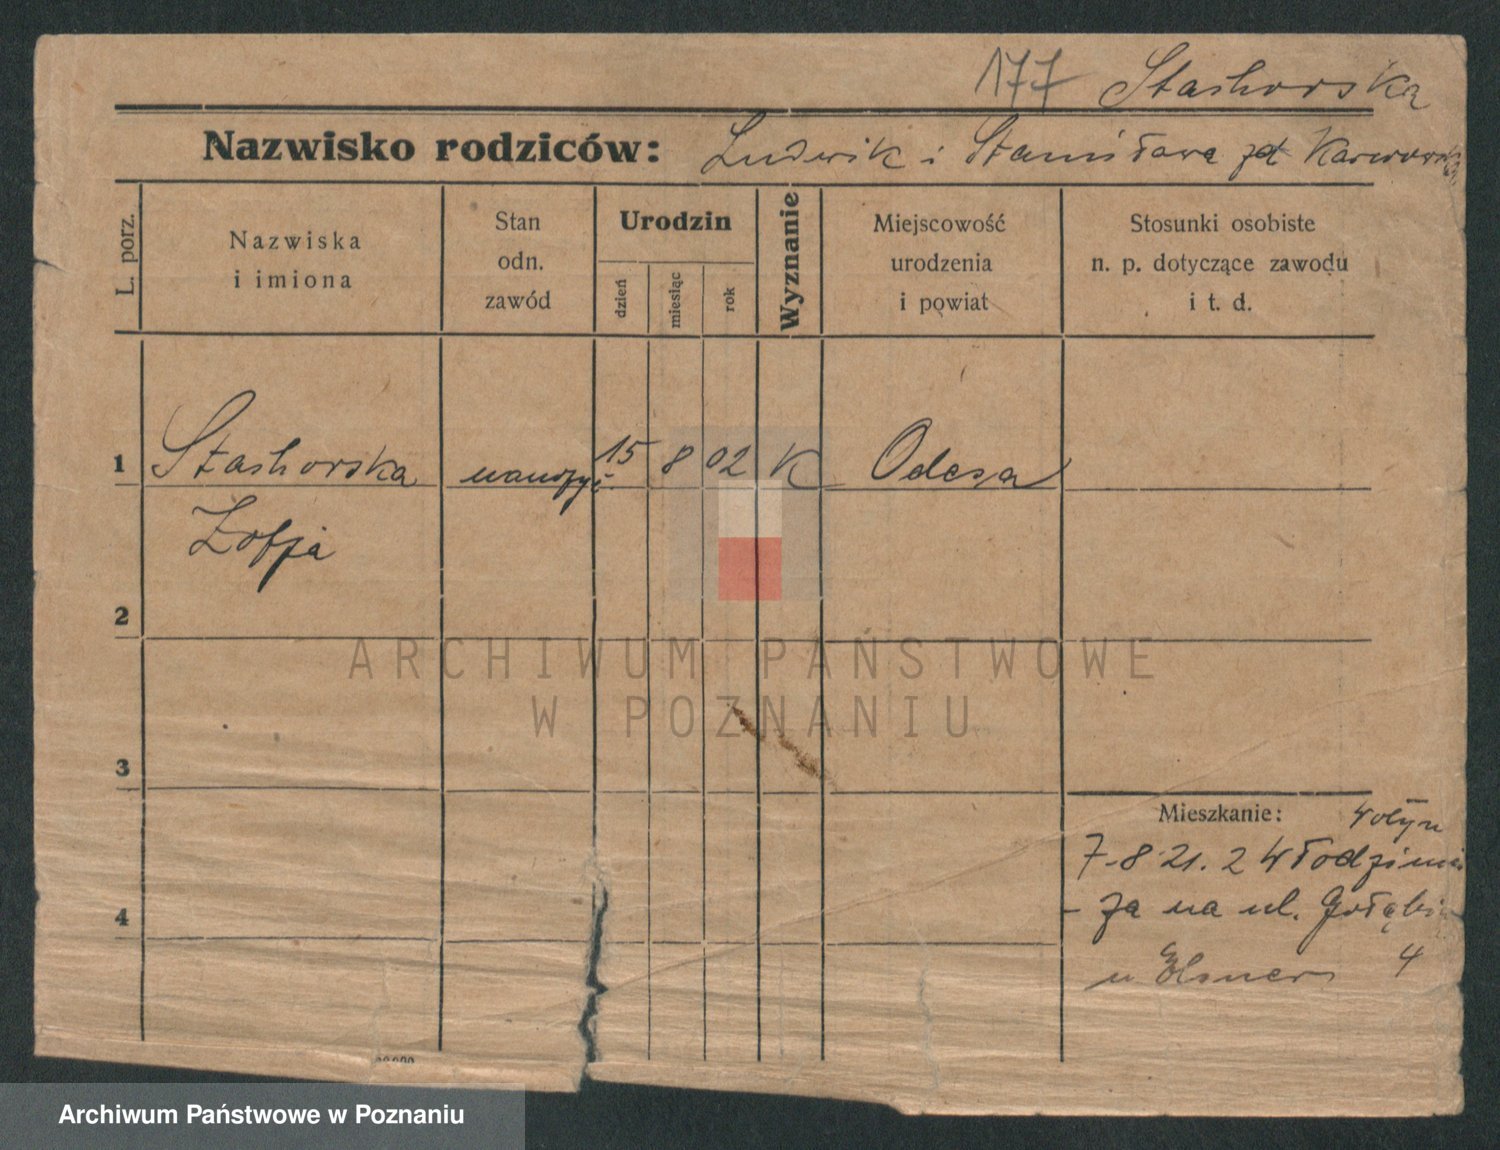 177 Stashorska
Nazwisko rodziców: Ludwik i Stanisława zd Karwowska
L. porz.
Nazwiska
i imiona
Stan
odn.
zawód
Urodzin
dzień
miesiąc
rok
Wyznanie
Miejscowość
urodzenia
i powiat
Stosunki osobiste
n. p. dotyczące zawodu
i t. d.
1 Stashorska nauczyc. 15 8 02 K Odesa
Zofja
2
3
4
Mieszkanie: Wołyn
7.8.21. z Włodzimie
- za na ul. Gołębia
u Elsner 4
ARCHIWUM PAŃSTWOWE
W POZNANIU
Archiwum Państwowe w Poznaniu